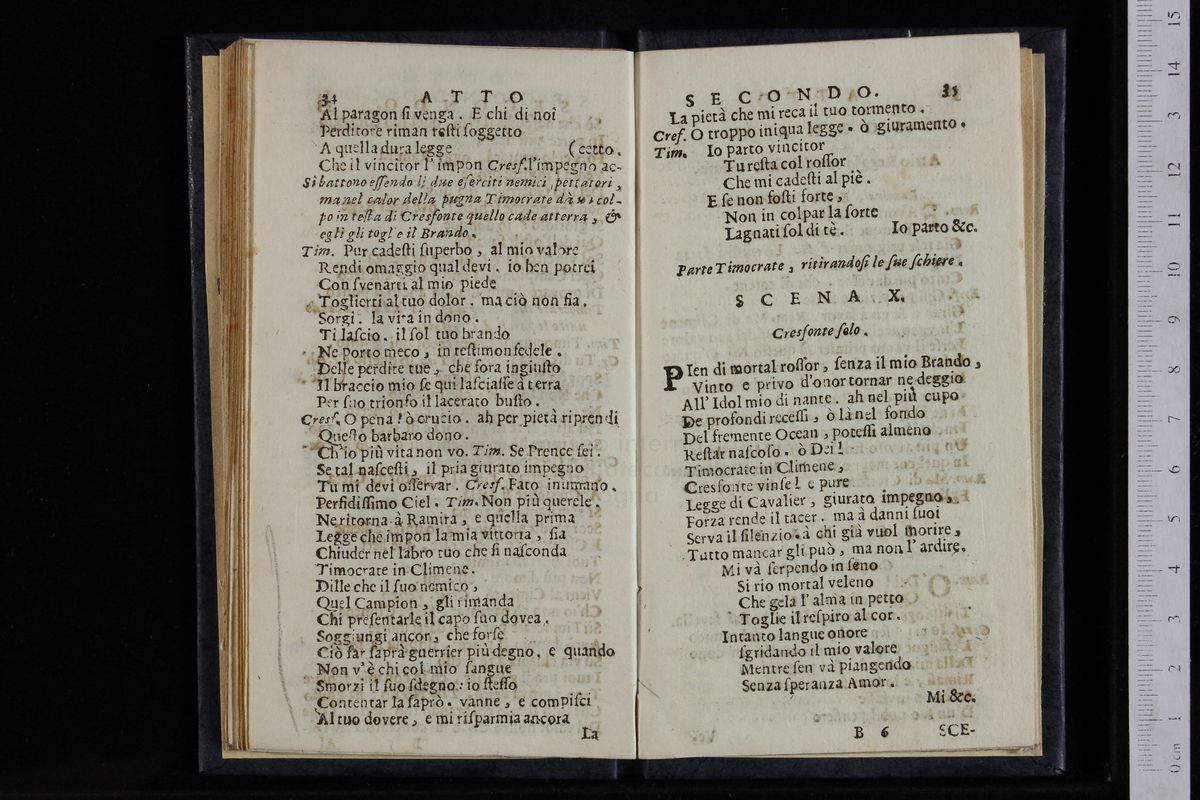 34 ATTO
Al paragon ſi venga. E chi di noi
Perditore riman reſti ſoggetto
A quella dura legge (cetto.
Che il vincitor l'impon Creſ. l'impegno ac-
Si battono eſſendo li due eſerciti nemici ſpettatori,
ma nel calor della pugna Timocrate dà un col-
po in teſta di Cresfonte quello cade atterra, &
egli gli toglie il Brando.
Tim. Pur cadeſti ſuperbo, al mio valore
Rendi omaggio qual devi. io ben potrei
Con ſvenarti al mio piede
Toglierti al tuo dolor. ma ciò non fia.
Sorgi. la vita in dono.
Ti laſcio. il ſol tuo brando
Ne porto meco, in teſtimon fedele.
Delle perdite tue, che fora ingiuſto
Il braccio mio ſe qui laſciaſſe à terra
Per ſuo trionfo il lacerato buſto.
Creſ. O pena! ò crucio. ah per pietà riprendi
Queſto barbaro dono.
Ch'io più vita non vo. Tim. Se Prence ſei.
Se tal naſceſti, il pria giurato impegno
Tu mi devi oſſervar. Creſ. Fato inumano.
Perfidiſſimo Ciel. Tim. Non più querele.
Ne ritorna à Ramira, e quella prima
Legge che impon la mia vittoria, ſia
Chiuder nel labro tuo che ſi naſconda
Timocrate in Climene.
Dille che il ſuo nemico,
Quel Campion, gli rimanda
Chi preſentarle il capo ſuo dovea.
Soggiungi ancor, che forſe
Ciò far ſaprà guerrier più degno. e quando
Non v'è chi col mio ſangue
Smorzi il ſuo ſdegno: io ſteſſo
Contentar la ſaprò. vanne, e compiſci
Al tuo dovere, e mi riſparmia ancora
La
SECONDO. 35
La pietà che mi reca il tuo tormento.
Creſ. O troppo iniqua legge. ò giuramento.
Tim. Io parto vincitor
Tu reſta col roſſor
Che mi cadeſti al piè.
E ſe non foſti forte,
Non in colpar la ſorte
Lagnati ſol di tè. Io parto &c.
Parte Timocrate, ritirandoſi le ſue ſchiere.
SCENA X.
Cresfonte ſolo.
PIen di mortal roſſor, ſenza il mio Brando,
Vinto e privo d'onor tornar ne deggio
All' Idol mio di nante. ah nel più cupo
De profondi receſſi, ò là nel fondo
Del fremente Ocean, poteſſi almeno
Reſtar naſcoſo. ò Dei!
Timocrate in Climene,
Cresfonte vinſe! e pure
Legge di Cavalier, giurato impegno,
Forza rende il tacer. ma à danni ſuoi
Serva il ſilenzio. à chi già vuol morire,
Tutto mancar gli può, ma non l'ardire.
Mi và ſerpendo in ſeno
Si rio mortal veleno
Che gela l'alma in petto
Toglie il reſpiro al cor.
Intanto langue onore
ſgridando il mio valore
Mentre ſen và piangendo
Senza ſperanza Amor.
Mi &c.
B 6 SCE-